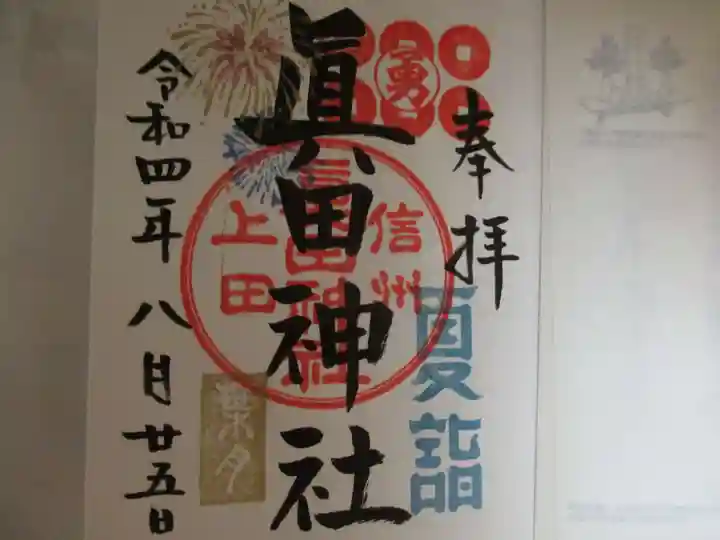 奉拝
勇
夏詣
眞田神社
信州
眞田神社
上田
令和四年八月廿五日